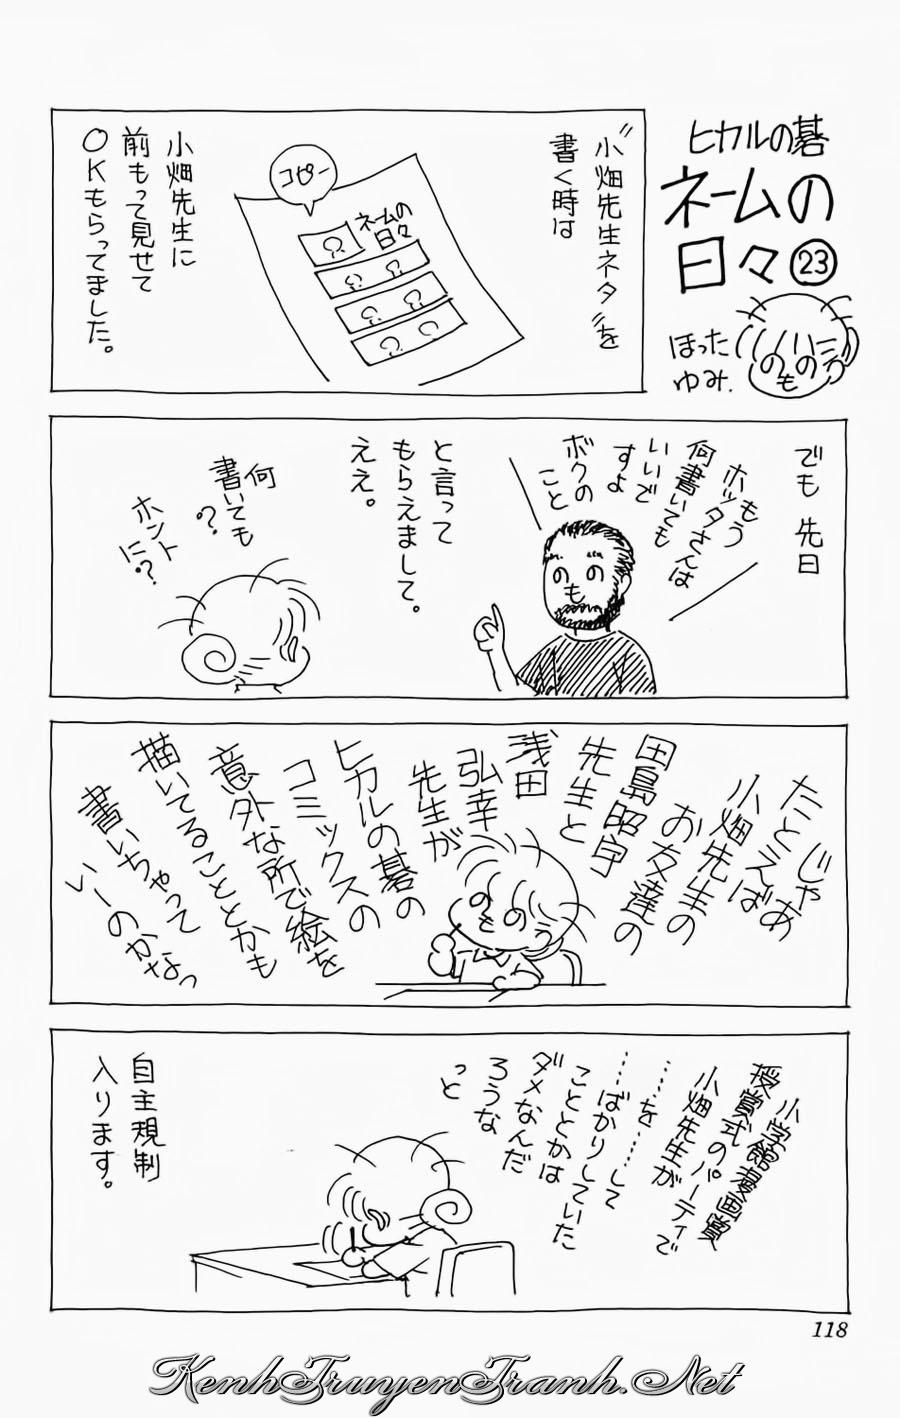 ヒカルの碁
ネームの
日々㉓
ほった
ゆみ.
〝小畑先生ネタ〟を
書く時は
コピー
ネームの
日々
小畑先生に
前もって見せて
OKもらってました。
でも 先日
もう
ホッタさんは
何書いても
いいで
すよ
ボクの
こと
と言って
もらえまして。
ええ。
何
書いても
?
ホント
に?
じゃあ
たとえば
小畑先生の
お友達の
田島昭宇
先生と
浅田
弘幸
先生が
ヒカルの碁の
コミックスの
意外な所で絵を
描いてることとかも
書いちゃって
いーのかなっ
小学館漫画賞
授賞式のパーティで
小畑先生が
……を……して
……ばかりしていた
こととかは
ダメなんだ
ろうな
っと
自主規制
入ります。
118
KenhTruyenTranh.Net